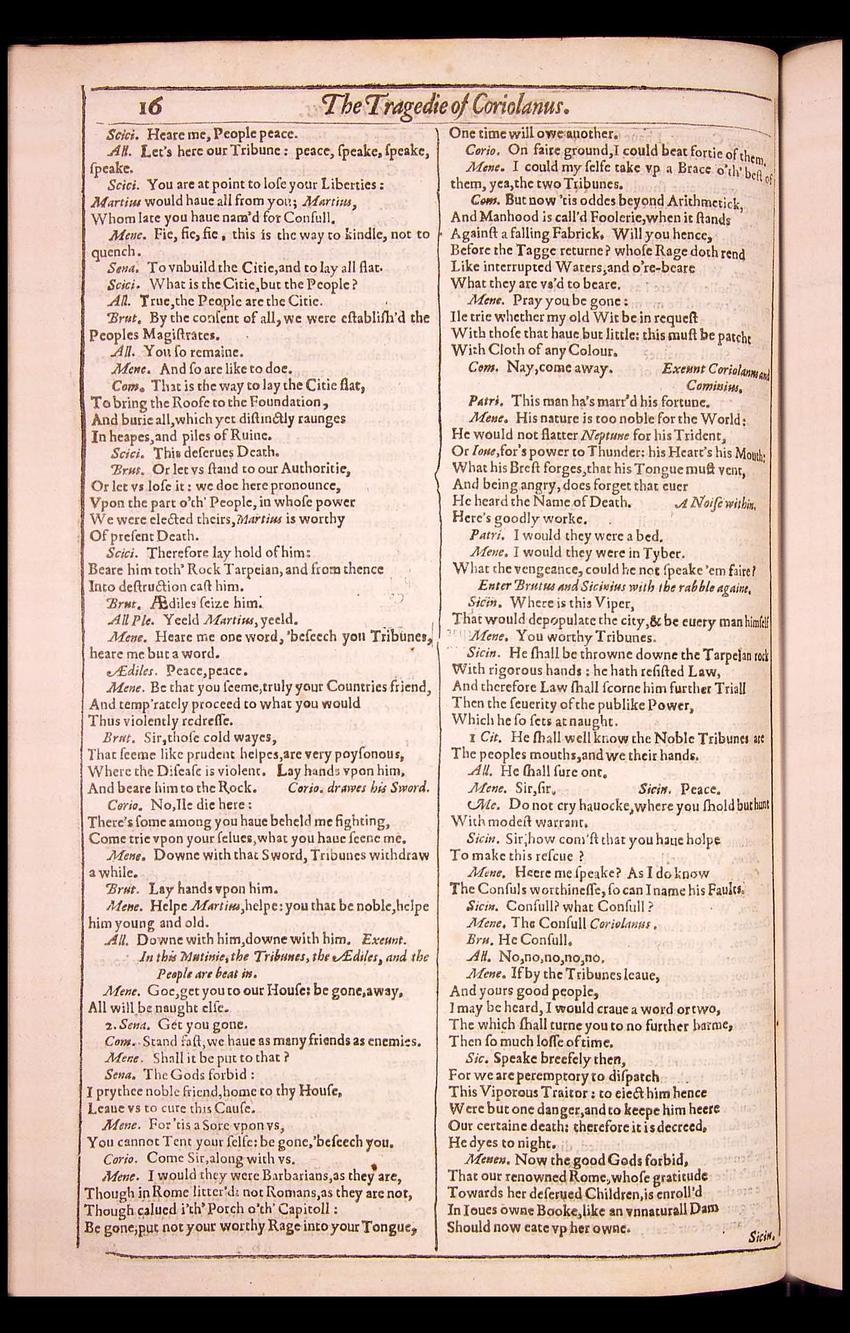 16
The Tragedie of Coriolanus.
Scici. Heare me, People peace.
All. Let's here our Tribune: peace, ſpeake, ſpeake,
ſpeake.
Scici. You are at point to loſe your Liberties:
Martius would haue all from you; Martius,
Whom late you haue nam'd for Conſull.
Mene. Fie, fie, fie, this is the way to kindle, not to
quench.
Sena. To vnbuild the Citie, and to lay all flat.
Scici. What is the Citie, but the People?
All. True, the People are the Citie.
Brut. By the conſent of all, we were eſtabliſh'd the
Peoples Magiſtrates.
All. You ſo remaine.
Mene. And ſo are like to doe.
Com. That is the way to lay the Citie flat,
To bring the Roofe to the Foundation,
And burie all, which yet diſtinctly raunges
In heapes, and piles of Ruine.
Scici. This deſerues Death.
Brut. Or let vs ſtand to our Authoritie,
Or let vs loſe it: we doe here pronounce,
Vpon the part o'th' People, in whoſe power
We were elected theirs, Martius is worthy
Of preſent Death.
Scici. Therefore lay hold of him:
Beare him toth' Rock Tarpeian, and from thence
Into deſtruction caſt him.
Brut. Ædiles ſeize him.
All Ple. Yeeld Martius, yeeld.
Mene. Heare me one word, 'beſeech you Tribunes,
heare me but a word.
Ædiles. Peace, peace.
Mene. Be that you ſeeme, truly your Countries friend,
And temp'rately proceed to what you would
Thus violently redreſſe.
Brut. Sir, thoſe cold wayes,
That ſeeme like prudent helpes, are very poyſonous,
Where the Diſeaſe is violent. Lay hands vpon him,
And beare him to the Rock. Corio. drawes his Sword.
Corio. No, Ile die here:
There's ſome among you haue beheld me fighting,
Come trie vpon your ſelues, what you haue ſeene me.
Mene. Downe with that Sword, Tribunes withdraw
a while.
Brut. Lay hands vpon him.
Mene. Helpe Martius, helpe: you that be noble, helpe
him young and old.
All. Downe with him, downe with him. Exeunt.
In this Mutinie, the Tribunes, the Ædiles, and the
People are beat in.
Mene. Goe, get you to our Houſe: be gone, away,
All will be naught elſe.
2. Sena. Get you gone.
Com. Stand faſt, we haue as many friends as enemies.
Mene. Shall it be put to that?
Sena. The Gods forbid:
I prythee noble friend, home to thy Houſe,
Leaue vs to cure this Cauſe.
Mene. For 'tis a Sore vpon vs,
You cannot Tent your ſelfe: be gone, 'beſeech you.
Corio. Come Sir, along with vs.
Mene. I would they were Barbarians, as they are,
Though in Rome litter'd: not Romans, as they are not,
Though calued i'th' Porch o'th' Capitoll:
Be gone, put not your worthy Rage into your Tongue,
One time will owe another.
Corio. On faire ground, I could beat fortie of them.
Mene. I could my ſelfe take vp a Brace o'th' beſt of
them, yea, the two Tribunes.
Com. But now 'tis oddes beyond Arithmetick,
And Manhood is call'd Foolerie, when it ſtands
Againſt a falling Fabrick. Will you hence,
Before the Tagge returne? whoſe Rage doth rend
Like interrupted Waters, and o're-beare
What they are vs'd to beare.
Mene. Pray you be gone:
Ile trie whether my old Wit be in requeſt
With thoſe that haue but little: this muſt be patcht
With Cloth of any Colour.
Com. Nay, come away. Exeunt Coriolanus and
Cominius.
Patri. This man ha's marr'd his fortune.
Mene. His nature is too noble for the World:
He would not flatter Neptune for his Trident,
Or Ioue, for's power to Thunder: his Heart's his Mouth:
What his Breſt forges, that his Tongue muſt vent,
And being angry, does forget that euer
He heard the Name of Death. A Noiſe within.
Here's goodly worke.
Patri. I would they were a bed.
Mene. I would they were in Tyber.
What the vengeance, could he not ſpeake 'em faire?
Enter Brutus and Sicinius with the rabble againe.
Sicin. Where is this Viper,
That would depopulate the city, & be euery man himſelf
Mene. You worthy Tribunes.
Sicin. He ſhall be throwne downe the Tarpeian rock
With rigorous hands: he hath reſiſted Law,
And therefore Law ſhall ſcorne him further Triall
Then the ſeuerity of the publike Power,
Which he ſo ſets at naught.
1 Cit. He ſhall well know the Noble Tribunes are
The peoples mouths, and we their hands.
All. He ſhall ſure ont.
Mene. Sir, ſir. Sicin. Peace.
Me. Do not cry hauocke, where you ſhold but hunt
With modeſt warrant.
Sicin. Sir, how com'ſt that you haue holpe
To make this reſcue?
Mene. Heere me ſpeake? As I do know
The Conſuls worthineſſe, ſo can I name his Faults.
Sicin. Conſull? what Conſull?
Mene. The Conſull Coriolanus.
Bru. He Conſull.
All. No, no, no, no, no.
Mene. If by the Tribunes leaue,
And yours good people,
I may be heard, I would craue a word or two,
The which ſhall turne you to no further harme,
Then ſo much loſſe of time.
Sic. Speake breefely then,
For we are peremptory to diſpatch
This Viporous Traitor: to eiect him hence
Were but one danger, and to keepe him heere
Our certaine death: therefore it is decreed,
He dyes to night.
Menen. Now the good Gods forbid,
That our renowned Rome, whoſe gratitude
Towards her deſerued Children, is enroll'd
In Ioues owne Booke, like an vnnaturall Dam
Should now eate vp her owne.
Sicin.